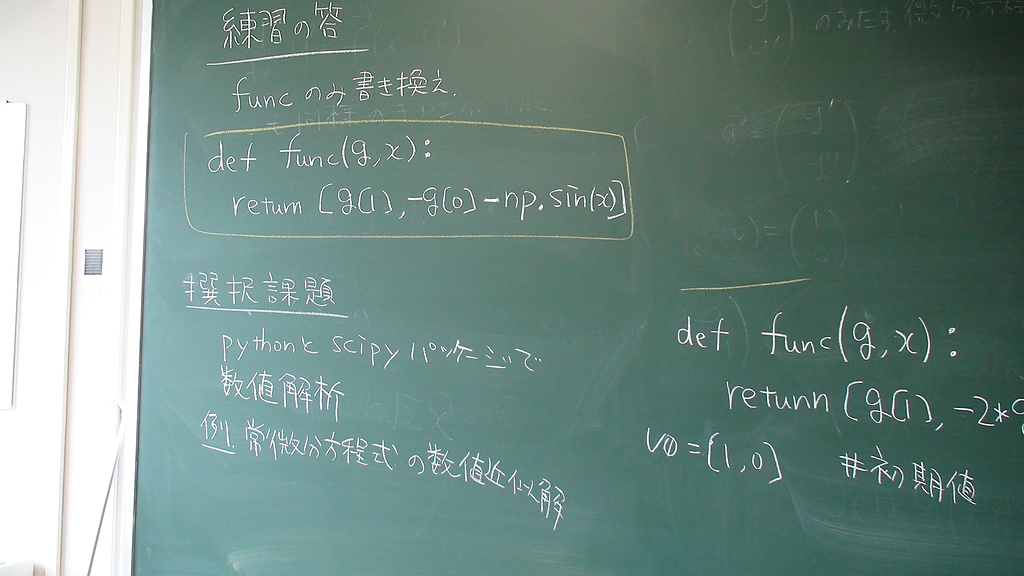 練習の答
funcのみ書き換え.
def func(g,x):
return [g[1],-g[0]-np.sin(x)]
選択課題
pythonと scipyパッケージで
数値解析
例 常微分方程式の数値近似解
のみたす微分方程
def func(g,x):
returnn [g[1], -2*g
v0=[1,0] #初期値